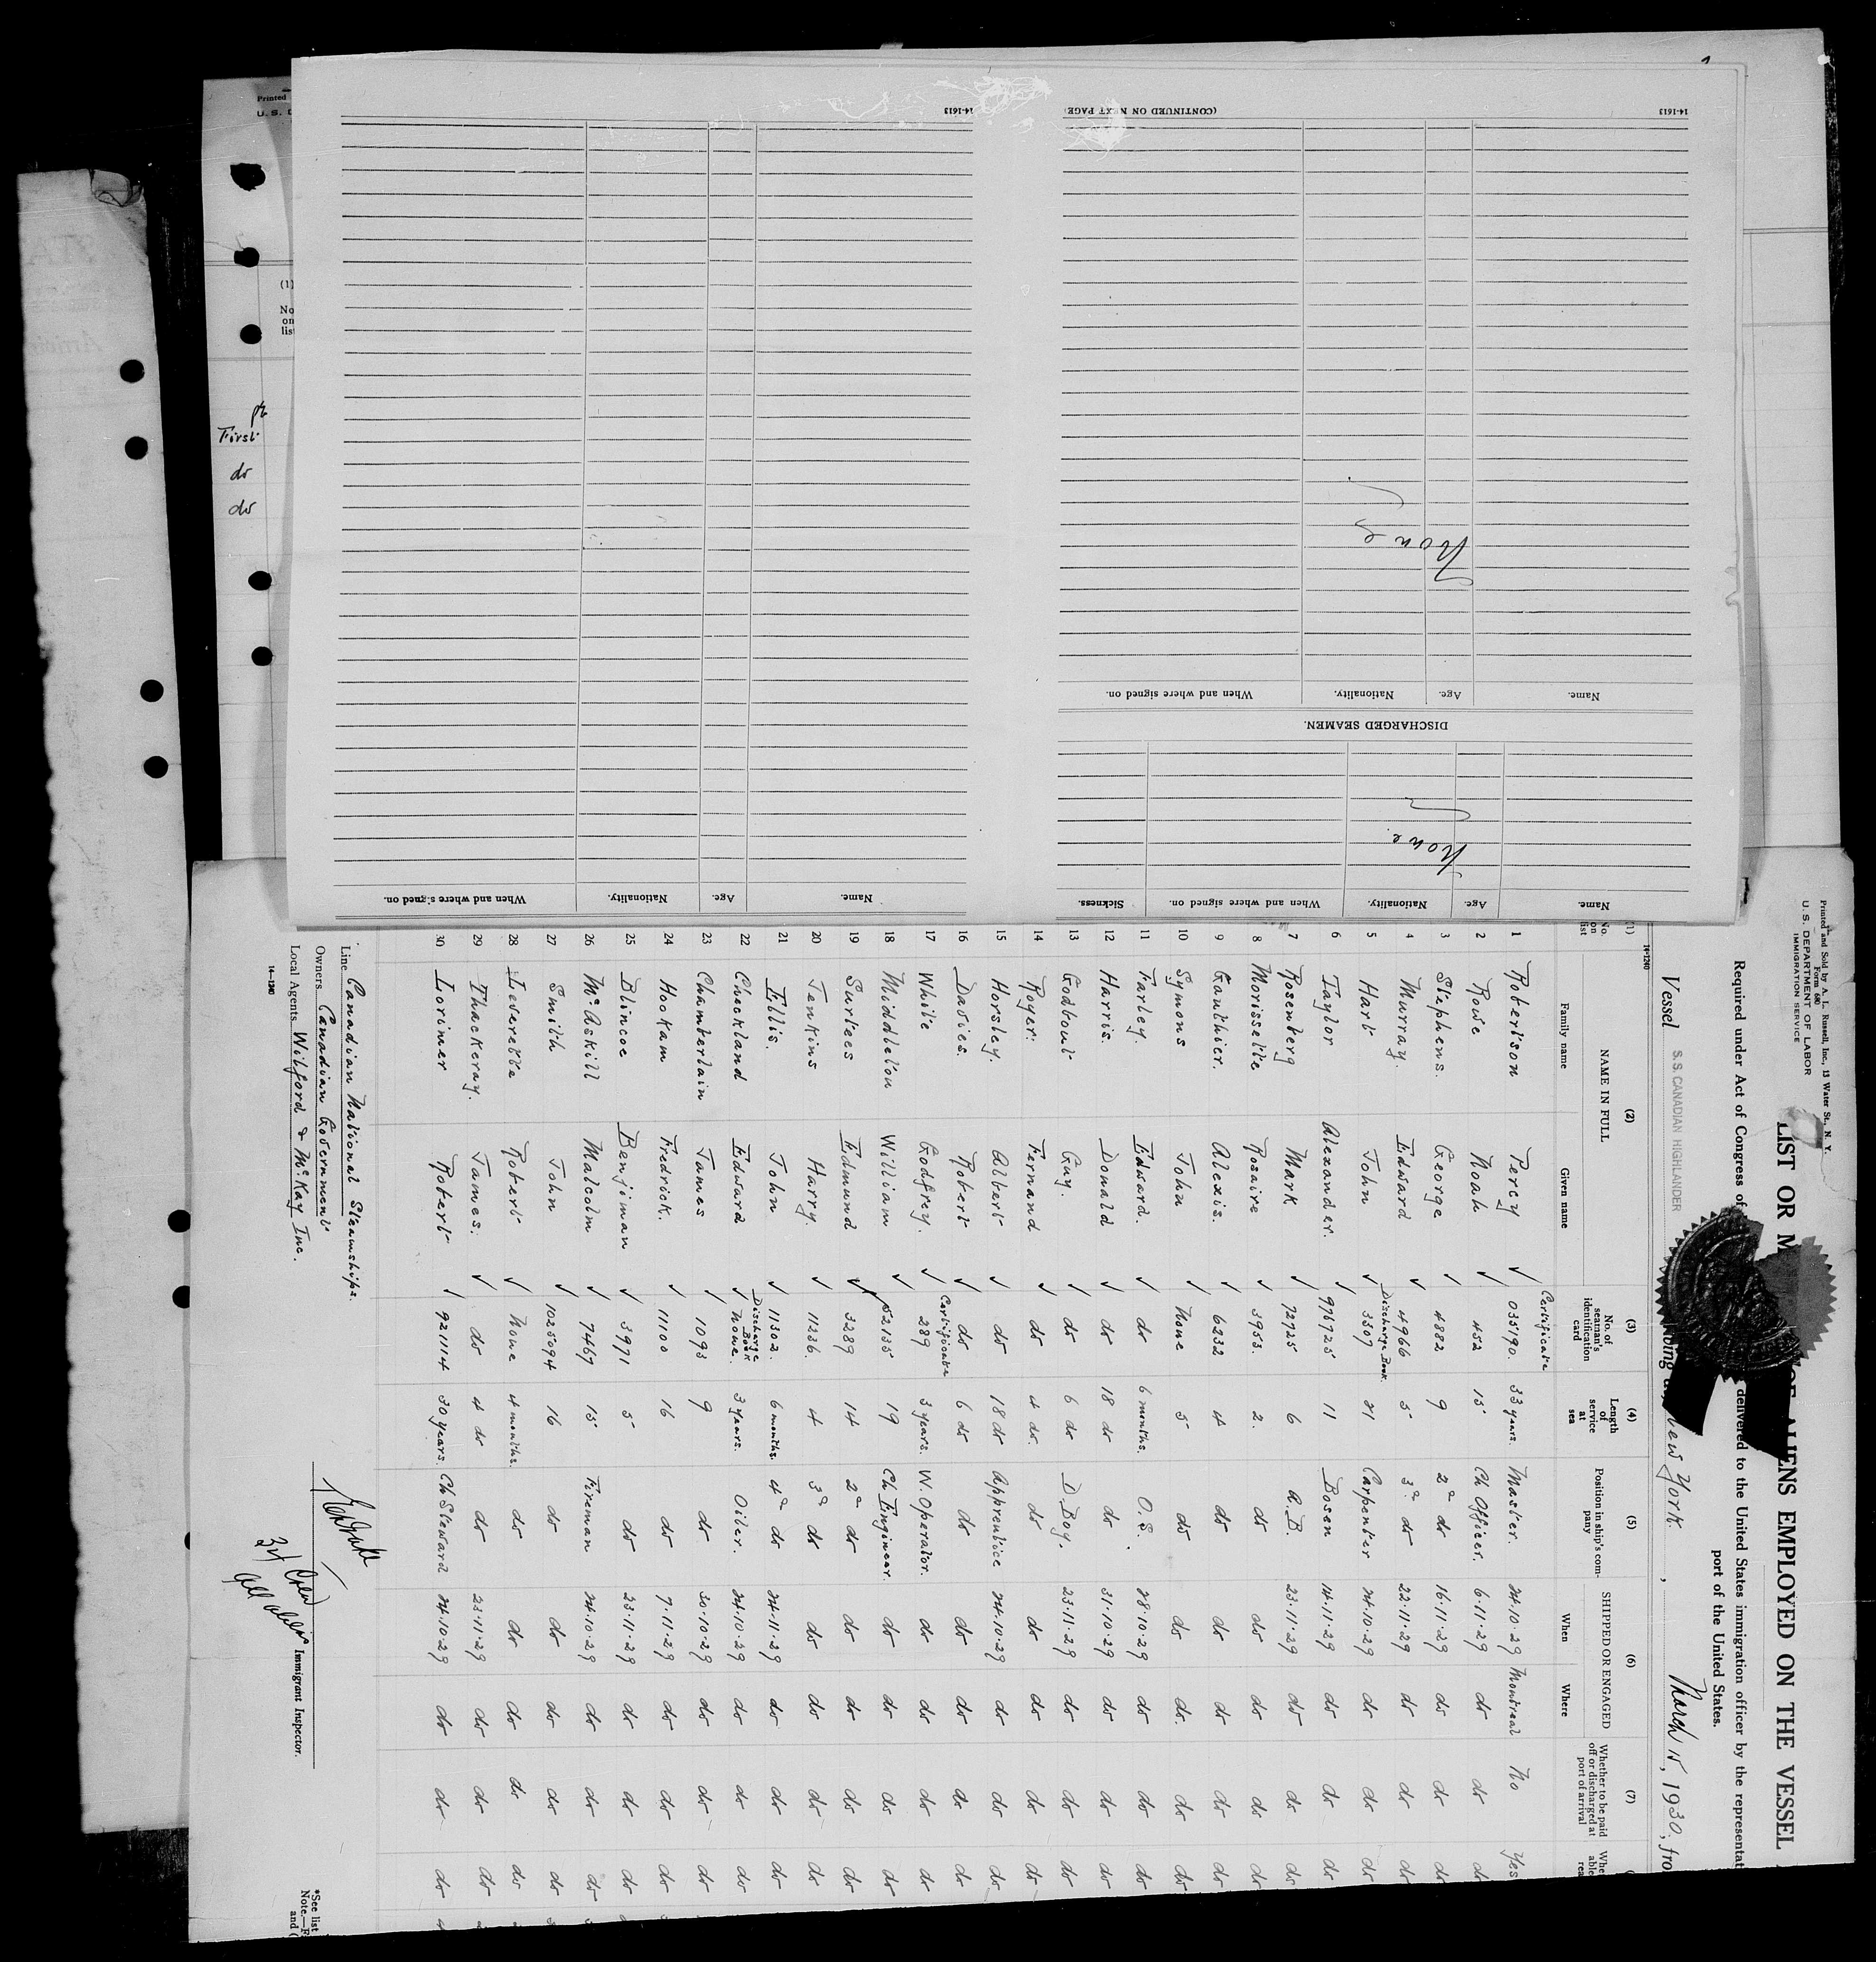 Printed and Sold by A. L. Russell, Inc., 13 Water St., N. Y.
Form 680
U. S. DEPARTMENT OF LABOR
IMMIGRATION SERVICE
LIST OR ALIENS EMPLOYED ON THE VESSEL
Required under Act of Congress of delivered to the United States immigration officer by the representat
port of the United States.
Vessel S. S. CANADIAN HIGHLANDER New York, March 15, 1930, fro
14-1240
(1) (2) (3) (4) (5) (6) (7)
No. on list NAME IN FULL No. of seaman's identification card Length of service at sea Position in ship's company SHIPPED OR ENGAGED Whether to be paid off or discharged at port of arrival
Family name Given name When Where
Certificate
1 Robertson Percy ✓ 035190. 33 years. Master. 24.10.29 Montreal No Yes
2 Rowe Noah ✓ 452 15 Ch Officer. 6.11.29 do do do
3 Stephens. George ✓ 4882 9 2d do 16.11.29 do do do
4 Murray. Edward ✓ 4966 5 3d do 22.11.29 do do do
Discharge Book.
5 Hart John ✓ 3307 21 Carpenter 24.10.29 do do do
6 Taylor Alexander. ✓ 976725 11 Bosen 14.11.29 do do do
7 Rosenberg Mark ✓ 72725 6 A.B. 23.11.29 do do do
8 Morissette Rosaire ✓ 3953. 2. do do do do do
9 Gauthier. Alexis. ✓ 6232 4 do do do do do
10 Symons John ✓ None 5 do do do. do do
11 Farley. Edward. ✓ do 6 months. O.S. 28.10.29 do do do
12 Harris. Donald ✓ do 18 do do. 31.10.29 do do do
13 Godbout Guy. ✓ do 6 do D.Boy. 23.11.29 do do do
14 Royer. Fernand ✓ do 4 do. do do do do do
15 Horsley. Albert ✓ do 18 do Apprentice 24.10.29 do do do
16 Davies. Robert ✓ do 6 do do do do do do
Certificate
17 White Godfrey. ✓ 289 3 years. W. Operator. do do do do
18 Middleton William ✓ 52135 19 Ch Engineer. do do do do
19 Surtees Edmund ✓ 3289 14 2d do do do do do
20 Jenkins Harry. ✓ 11236. 4 3d do do do do do
21 Ellis. John ✓ 11302. 6 months. 4d do 24.11.29 do do do
Discharge Book
22 Checkland Edward ✓ None. 3 years. Oiler. 24.10.29 do do do
23 Chamberlain James ✓ 1093 9 do. 30.10.29 do do do
24 Hookam Fredrick. ✓ 11100 16 do 7.11.29 do do do
25 Blincoe Benjiman ✓ 3971 5 do 23.11.29 do do do
26 McAskill Malcolm ✓ 7467 15 Fireman 24.10.29 do do do
27 Smith John ✓ 1025094 16 do do do do do
28 Leverette Robert ✓ None 4 months. do do do do do
29 Thackeray. James. ✓ do 4 do do 23.11.29 do do do
30 Lorimer Robert ✓ 921114 30 years. Ch Steward 24.10.29 do do do
Line Canadian National Steamships.
Owners Canadian Government
Local Agents Wilford & McKay Inc.
Immigrant Inspector.
14-1240
*See list
Note.
and (
Name. Age. Nationality. When and where signed on. Sickness.
None.
DISCHARGED SEAMEN.
Name. Age. Nationality. When and where signed on.
None
14-1613
(CONTINUED ON NEXT PAGE)
Name. Age. Nationality. When and where signed on.
14-1613
Printed
U. S. D
(1)
No
on
list
First
do
do